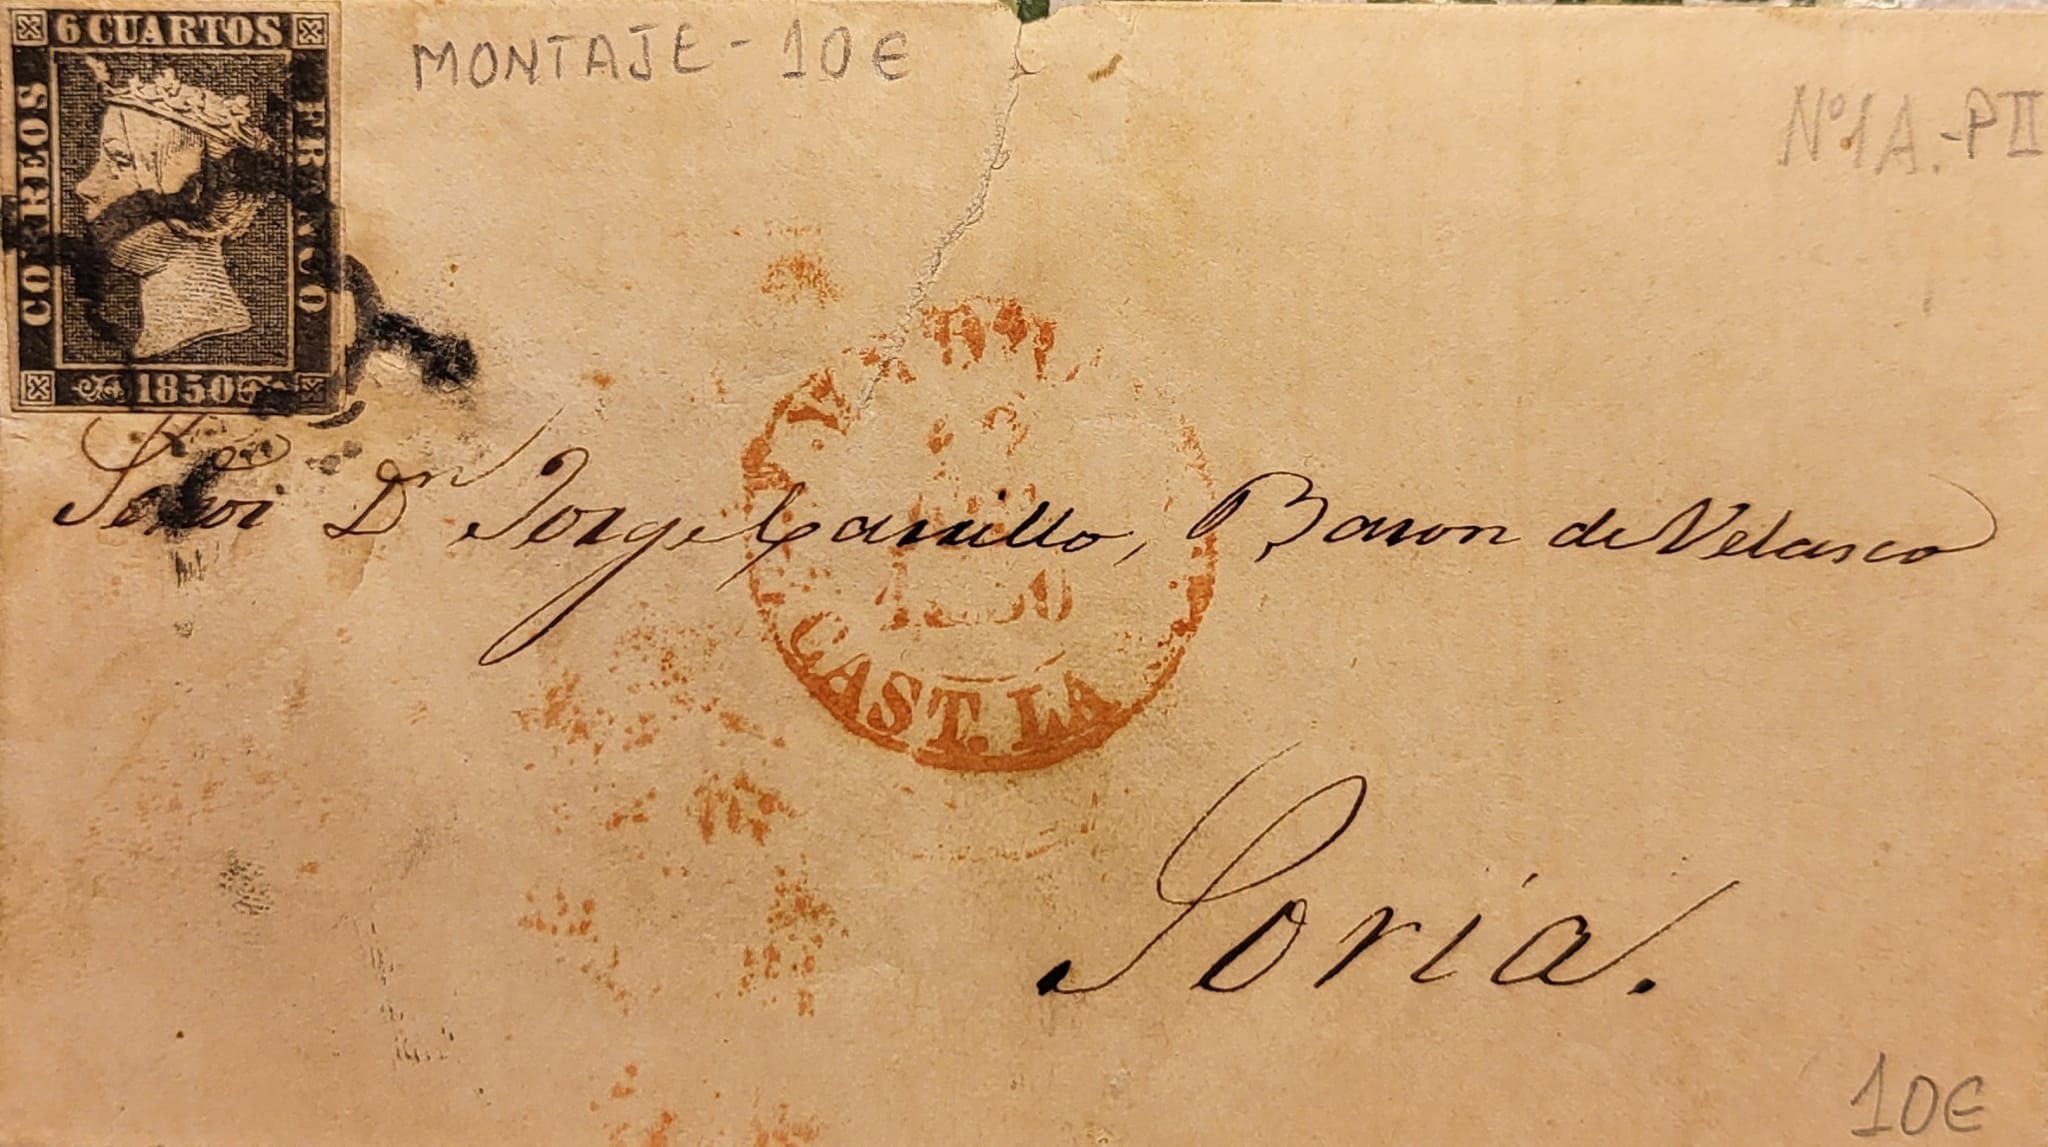 6 CUARTOS
CORREOS
FRANCO
1850
MONTAJE - 10€
Nº 1A.-PII
Señor Dn Jorge Carrillo, Baron de Velasco
1850
CAST. LA
Soria.
10€